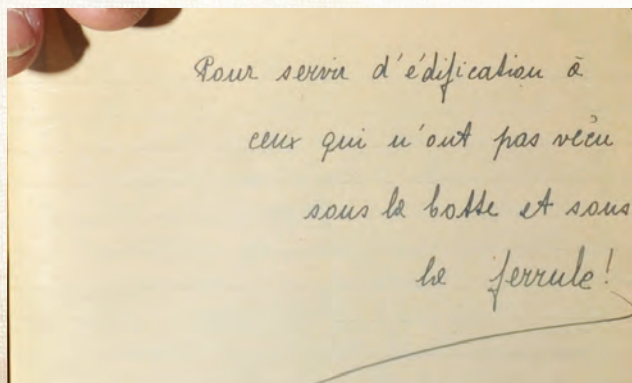 Pour servir d'édification à
ceux qui n'ont pas vécu
sous la botte et sous
la ferrule!